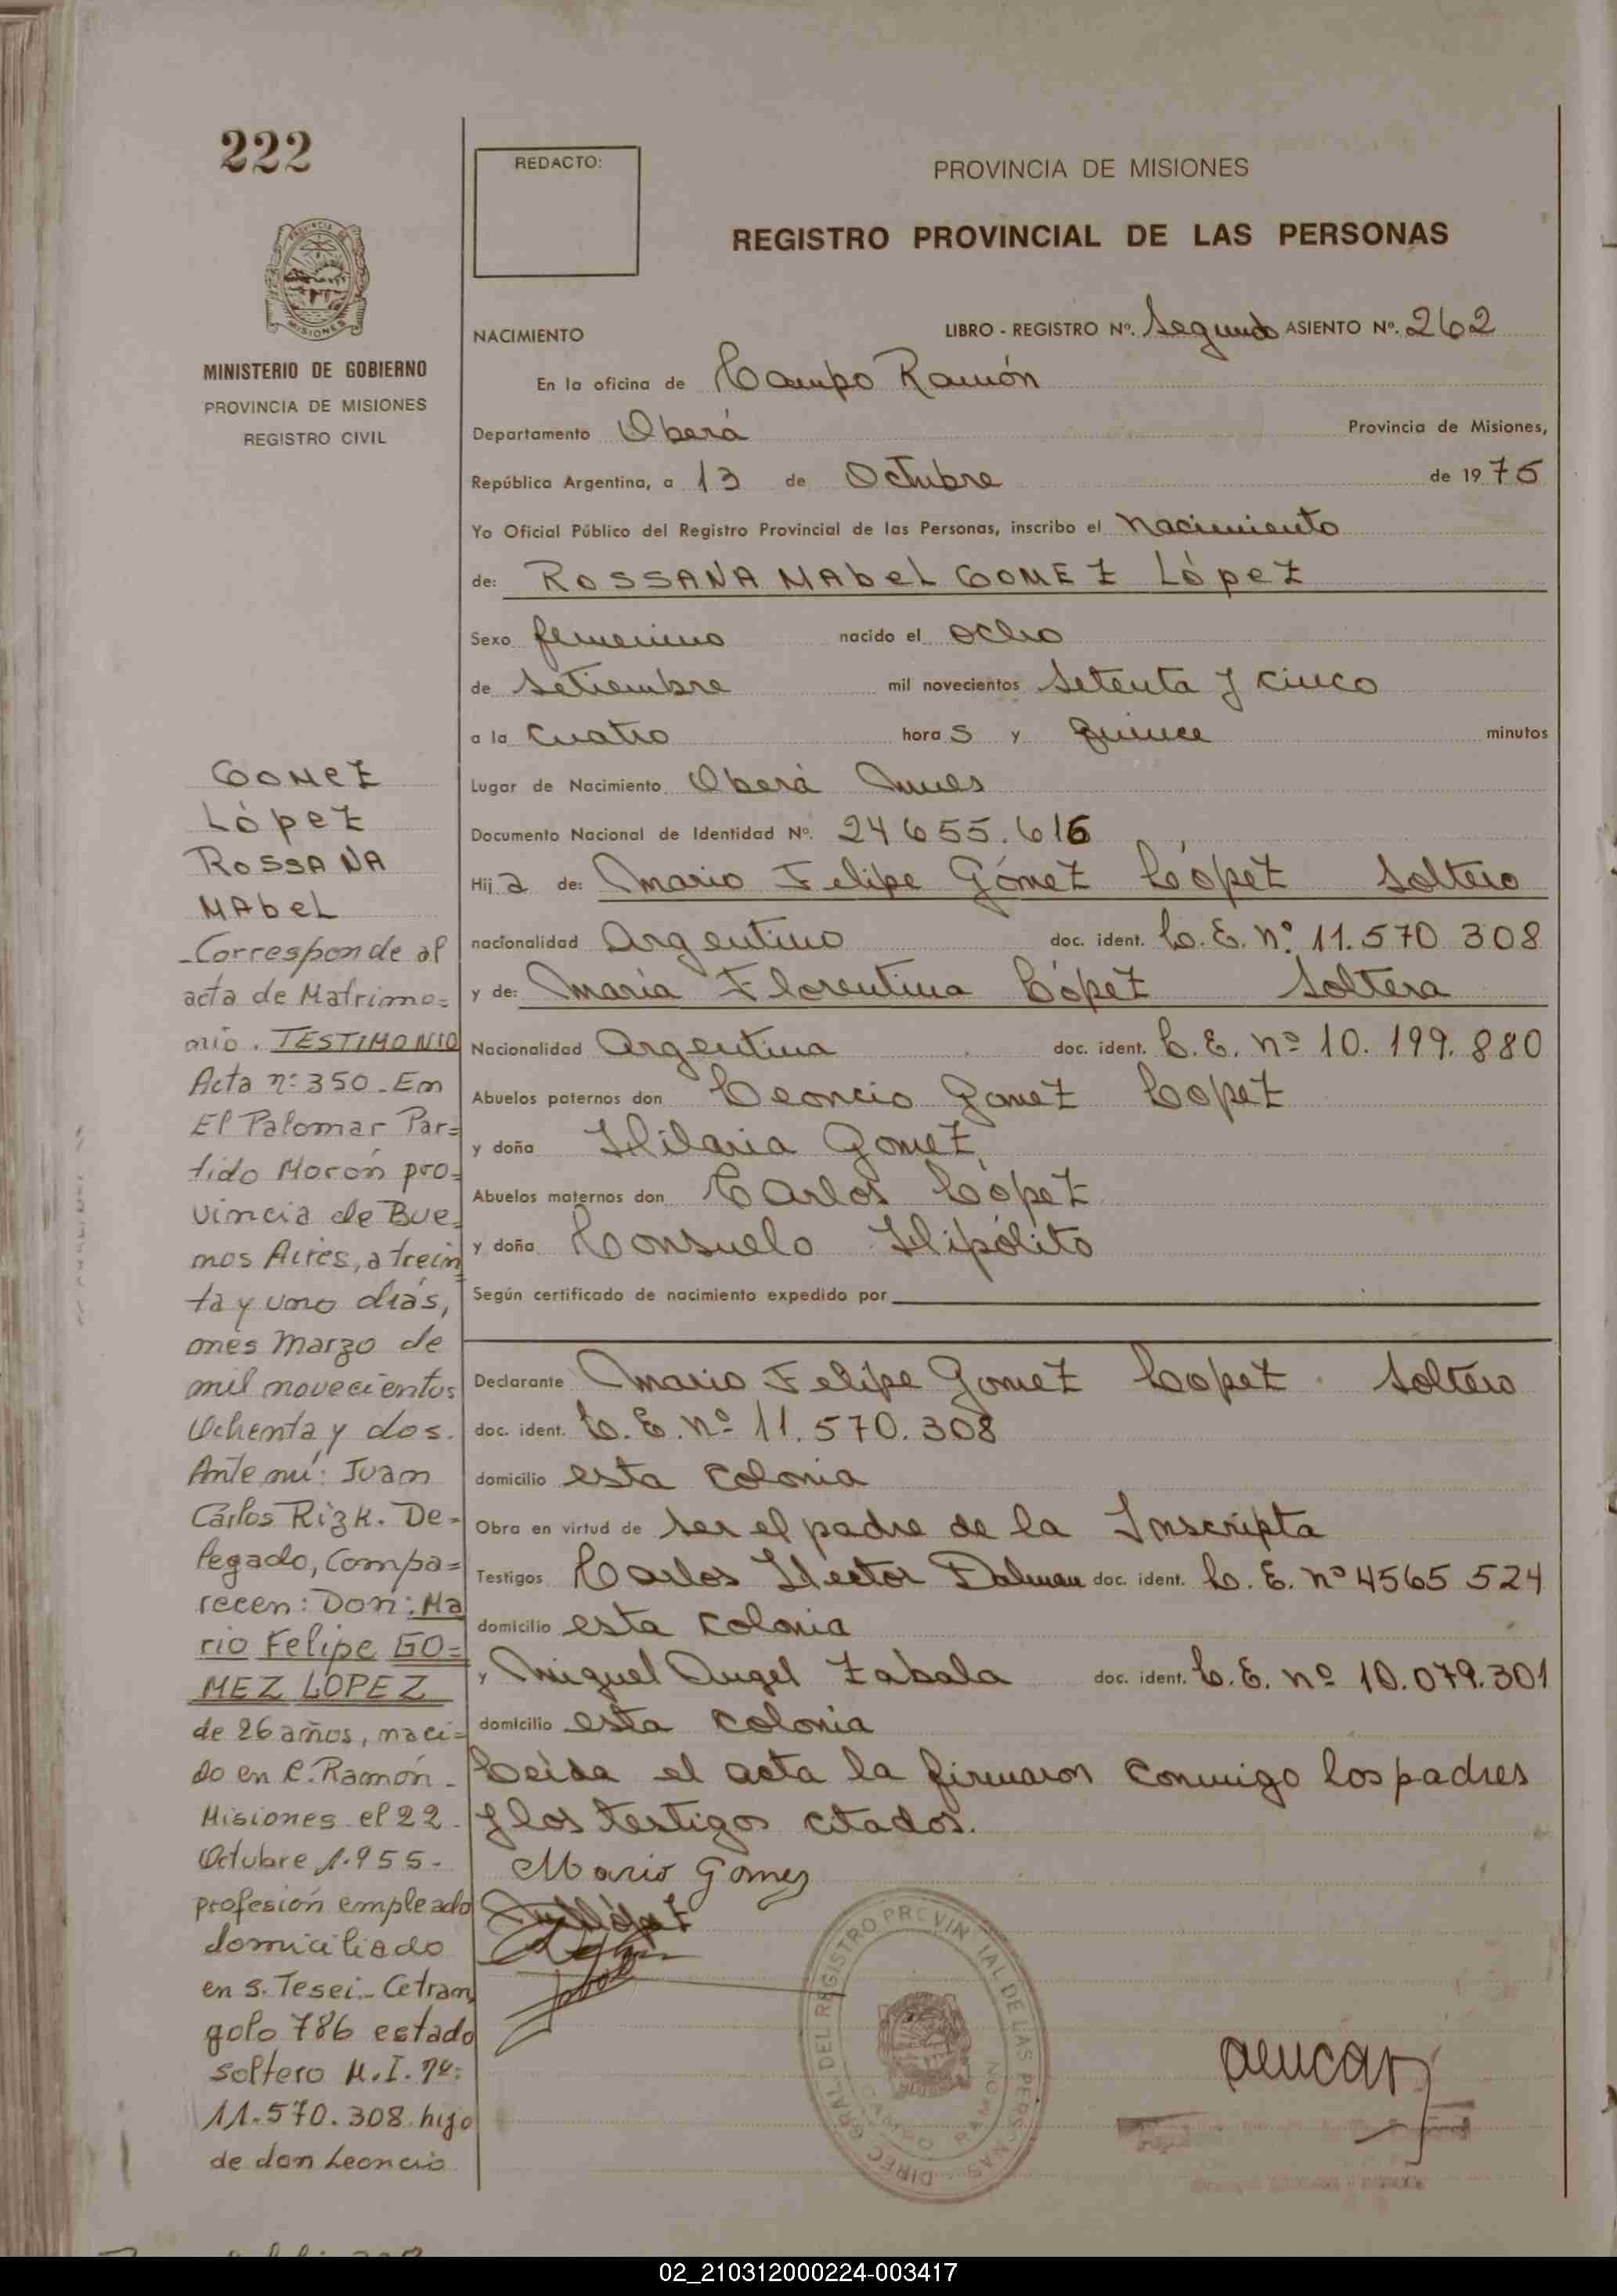 222
REDACTO:
PROVINCIA DE MISIONES
REGISTRO PROVINCIAL DE LAS PERSONAS
MINISTERIO DE GOBIERNO
PROVINCIA DE MISIONES
REGISTRO CIVIL
NACIMIENTO LIBRO - REGISTRO Nº. Segundo ASIENTO Nº. 262
En la oficina de Campo Ramón
Departamento Oberá Provincia de Misiones,
República Argentina, a 13 de Octubre de 1975
Yo Oficial Público del Registro Provincial de las Personas, inscribo el Nacimiento
de: ROSSANA MAbeL GOMEZ López
Sexo femenino nacido el ocho
de Setiembre mil novecientos Setenta y cinco
a la cuatro horas y quince minutos
Lugar de Nacimiento Oberá Mnes
Documento Nacional de Identidad Nº. 24655.616
Hija de: Mario Felipe Gómez López Soltero
nacionalidad Argentino doc. ident. L.E. Nº 11.570 308
y de: Maria Florentina López Soltera
Nacionalidad Argentina doc. ident. L.E. nº 10.199.880
Abuelos paternos don Leoncio Gomez Lopez
y doña Hilaria Gomez
Abuelos maternos don Carlos López
y doña Consuelo Hipólito
Según certificado de nacimiento expedido por
Declarante Mario Felipe Gomez Lopez Soltero
doc. ident. L.E. nº 11.570.308
domicilio esta colonia
Obra en virtud de ser el padre de la Inscripta
Testigos Carlos Hector Dalmau doc. ident. L.E. nº 4565 524
domicilio esta colonia
y Miguel Angel Zabala doc. ident. L.E. nº 10.079.301
domicilio esta colonia
Leida el acta la firmaron conmigo los padres
y los testigos citados.
Mario Gomez
GOMEZ
López
ROSSANA
MAbeL
-Corresponde al
acta de Matrimo=
nio. TESTIMONIO
Acta nº 350-En
El Palomar Par=
tido Morón pro=
vincia de Bue=
nos Aires, a trein=
ta y uno dias,
mes Marzo de
mil novecientos
Ochenta y dos.
Ante mi: Juan
Carlos Rizk. De=
legado, Compa=
recen: Don: Ma
rio Felipe GO=
MEZ LOPEZ
de 26 años, naci=
do en C. Ramón-
Misiones el 22-
Octubre 1.955-
profesión empleado
domiciliado
en S. Tesei-Cetran
golo 786 estado
soltero M.I. nº:
11.570.308 hijo
de don Leoncio
DIREC. GRAL. DEL REGISTRO PROVINCIAL DE LAS PERSONAS
CAMPO RAMON
02_210312000224-003417